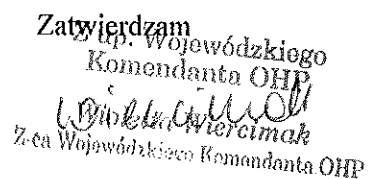 Zatwierdzam
Z up. Wojewódzkiego
Komendanta OHP
Wioletta Wiercimak
Z-ca Wojewódzkiego Komendanta OHP